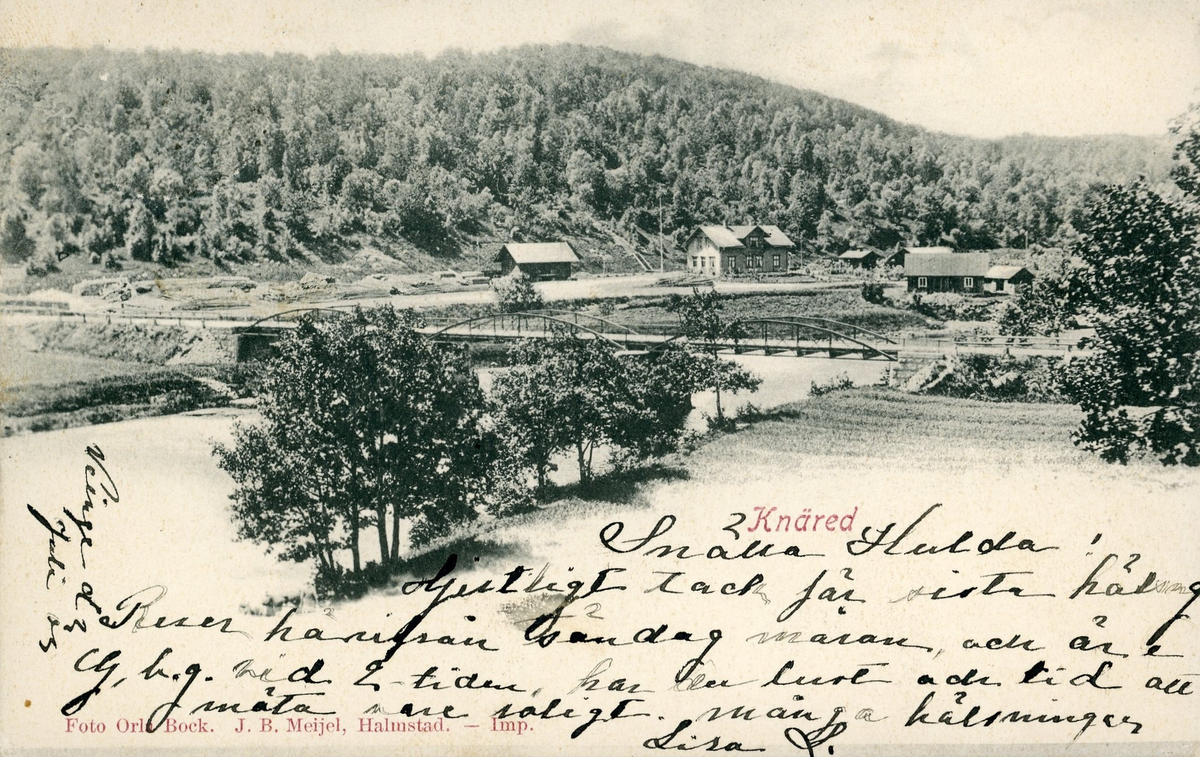 Knäred
Snälla Hulda!
Hjertligt tack för sista hälsning
Reser härifrån Söndag måran, och är i
G, b.g. vid 2-tiden, har du lust och tid att
möta vore roligt. många hälsningar
Lisa S.
Veinge d. 3
Juli 03
Foto Orla Bock. J. B. Meijel, Halmstad. — Imp.